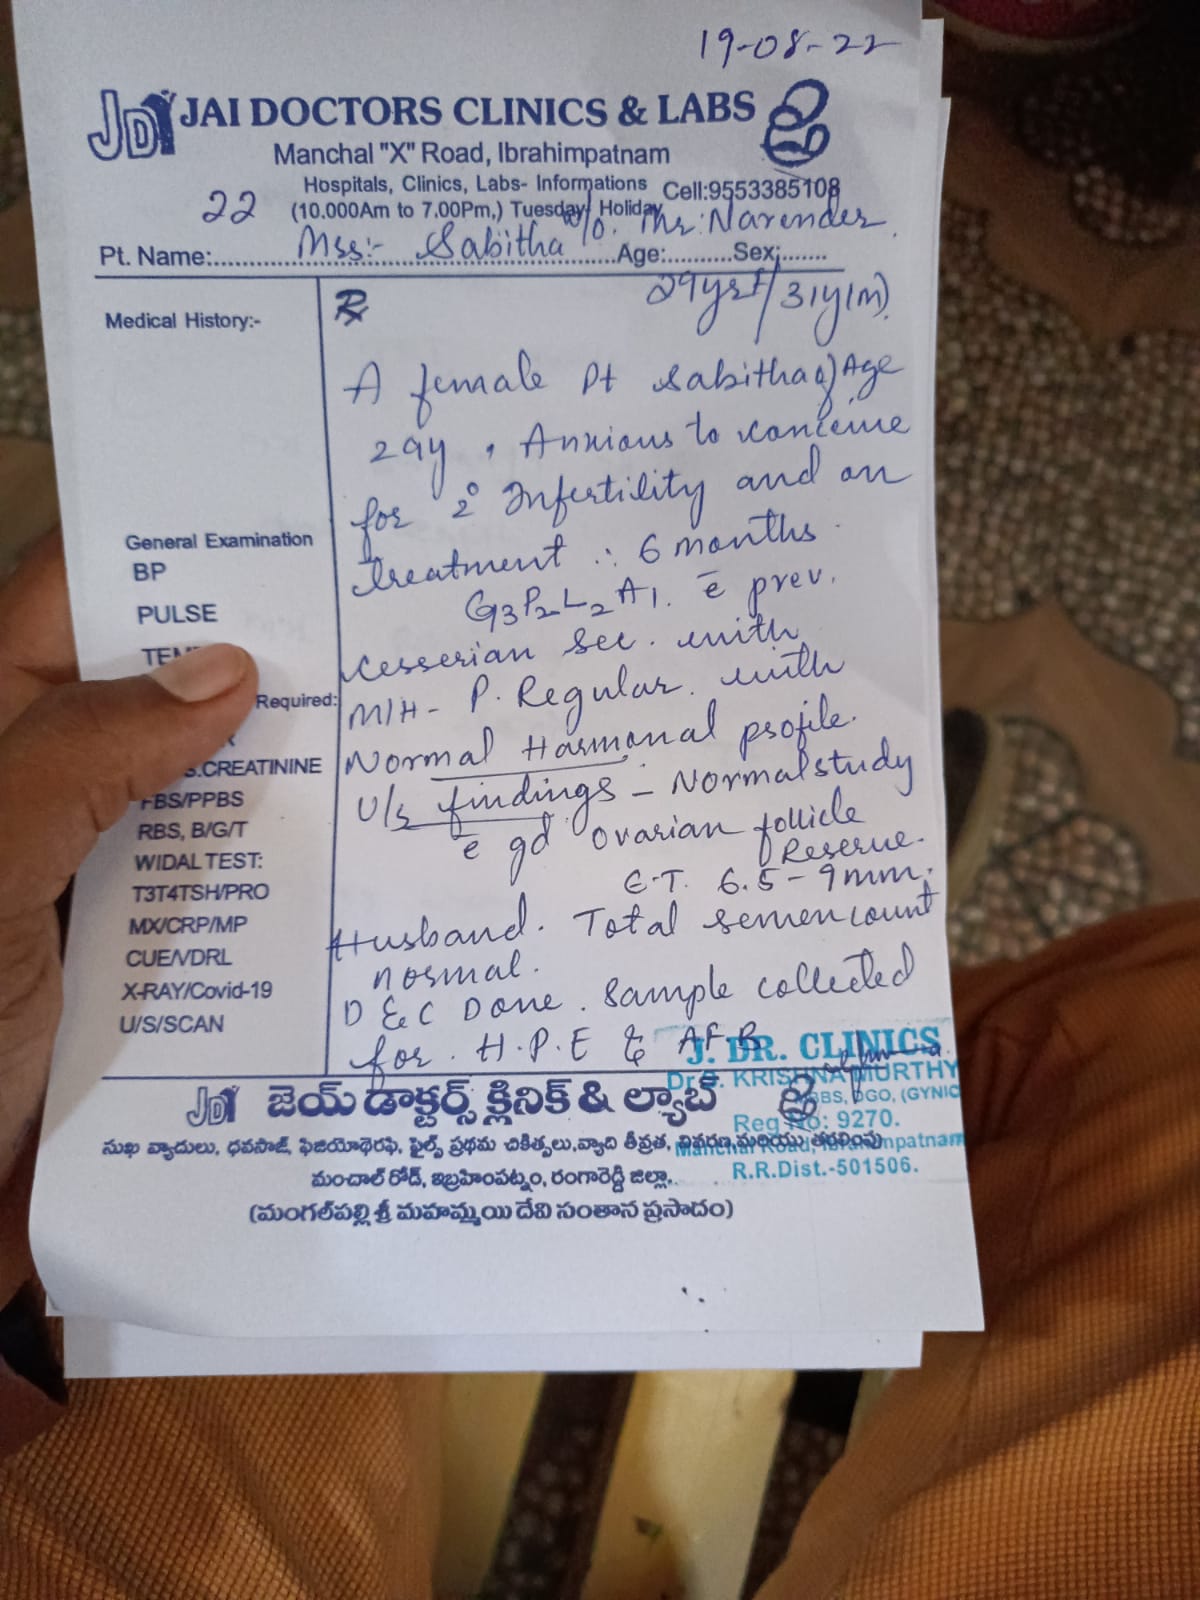 19-08-22
JDr JAI DOCTORS CLINICS & LABS
Manchal "X" Road, Ibrahimpatnam
Hospitals, Clinics, Labs- Informations Cell:9553385108
22 (10.000Am to 7.00Pm,) Tuesday Holiday
W/o. Mr. Narender
Pt. Name:..... Mss:- Sabitha .....Age:..........Sex:.......
29yrs/31y(m)
Medical History:-
Rx
A female Pt Sabitha of Age
29y, Anxious to conceive
for 2° Infertility and on
treatment ∴ 6 months.
G3P2L2A1. c̄ prev.
cesserian sec. with
M/H- P. Regular. with
Normal Harmonal profile.
U/s findings - Normal study
c̄ gd ovarian follicle
Reserve.
E.T. 6.5-9mm.
Husband. Total semen count
normal.
D & C Done. Sample collected
for. H.P.E & AFB
General Examination
BP
PULSE
Required:
S.CREATININE
FBS/PPBS
RBS, B/G/T
WIDAL TEST:
T3T4TSH/PRO
MX/CRP/MP
CUE/VDRL
X-RAY/Covid-19
U/S/SCAN
J. DR. CLINICS
KRISHNA MURTHY
MBBS, DGO, (GYNIC
Reg No: 9270.
Manchal Road, Ibrahimpatnam
R.R.Dist.-501506.
JDr జెయ్ డాక్టర్స్ క్లినిక్ & ల్యాబ్
సుఖ వ్యాదులు, ధవసాజ్, ఫిజియోథెరఫి, ఫైల్స్ ప్రథమ చికిత్సలు,వ్యాది తీవ్రత, వివరణ మరియు తరలింపు
మంచాల్ రోడ్, ఇబ్రహింపట్నం, రంగారెడ్డి జిల్లా.
(మంగల్‌పల్లి శ్రీ మహమ్మయి దేవి సంతాన ప్రసాదం)